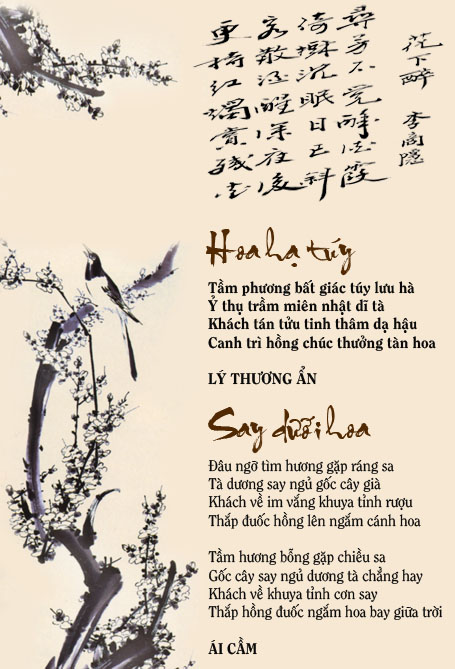 花下醉 李商隱
尋芳不覺醉流霞
倚樹沉眠日已斜
客散酒醒深夜後
更持紅燭賞殘花
Hoa hạ túy
Tầm phương bất giác túy lưu hà
Ỷ thụ trầm miên nhật dĩ tà
Khách tán tửu tinh thâm dạ hậu
Canh trì hồng chúc thưởng tàn hoa
LÝ THƯƠNG ẨN
Say dưới hoa
Đâu ngờ tìm hương gặp ráng sa
Tà dương say ngủ gốc cây già
Khách về im vắng khuya tỉnh rượu
Thắp đuốc hồng lên ngắm cánh hoa
Tầm hương bỗng gặp chiều sa
Gốc cây say ngủ dương tà chẳng hay
Khách về khuya tỉnh cơn say
Thắp hồng đuốc ngắm hoa bay giữa trời
ÁI CẦM